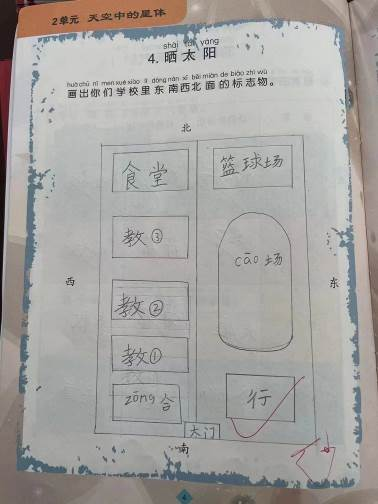 2单元 天空中的星体
shài tài yáng
4. 晒太阳
huà chū nǐ men xué xiào lǐ dōng nán xī běi miàn de biāo zhì wù
画出你们学校里东南西北面的标志物。
北
食堂
篮球场
教③
cāo场
西
东
教②
教①
zōng合
行
大门
南
4